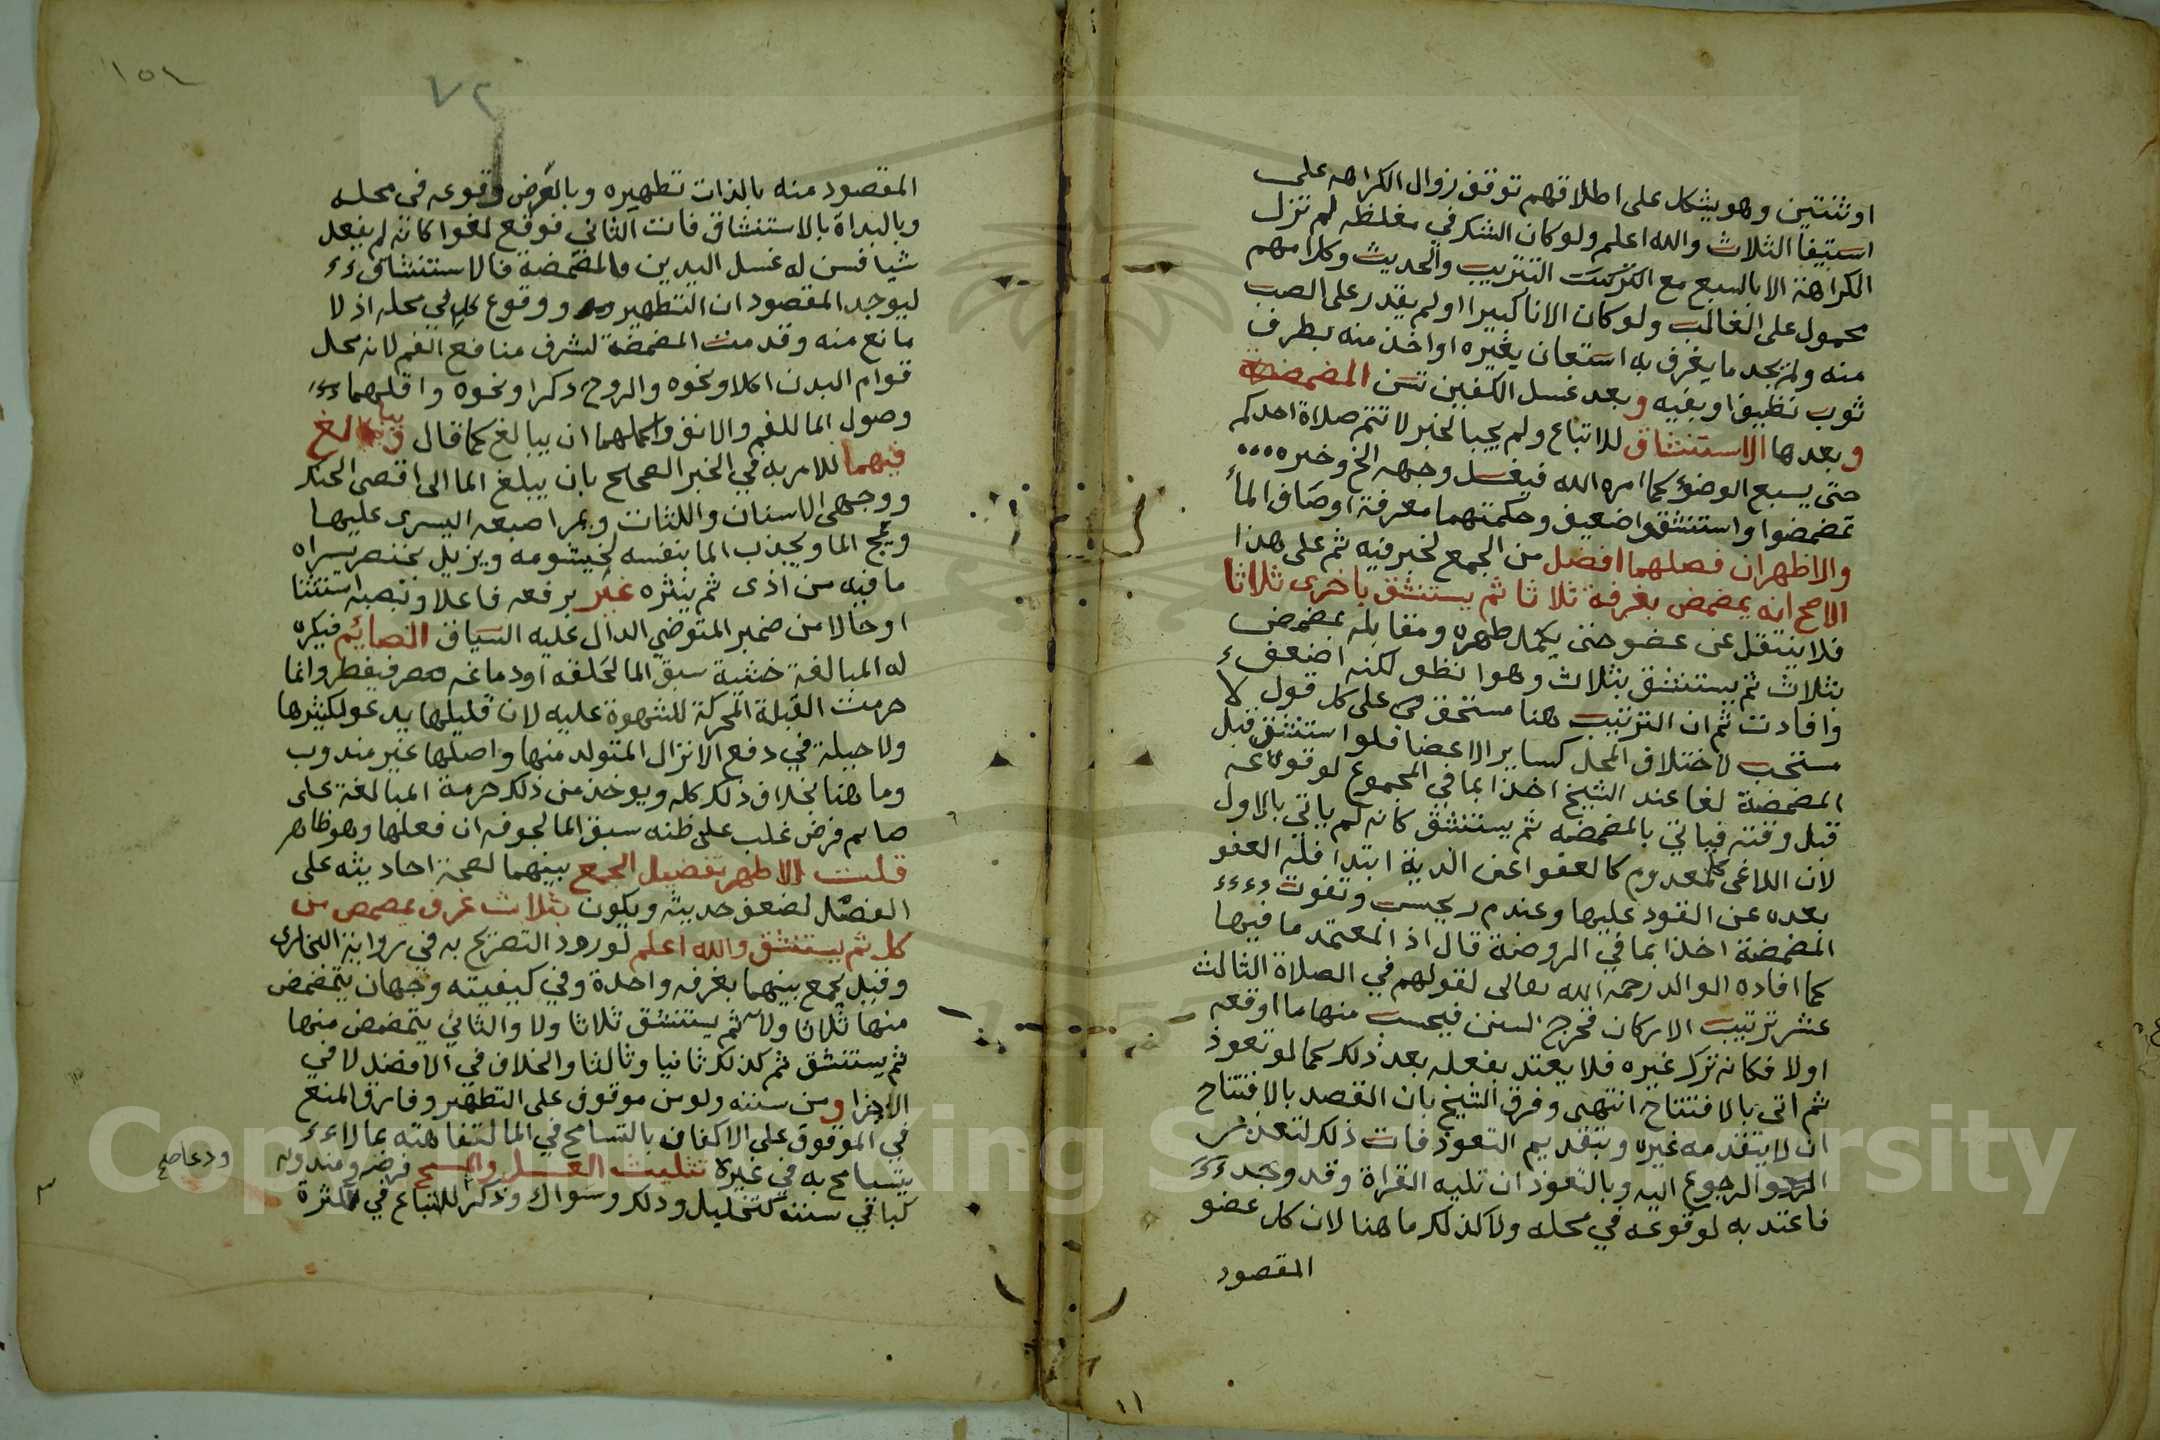 او ثنتين وهو يشكل على اطلاقهم توقف زوال الكراهه على
استيفا الثلاث والله اعلم ولو كان الشك في مغلظه لم تزل
الكراهة الا بالسبع مع التتريب والحديث وكلامهم
محمول على الغالب ولو كان الانا كبيرا اولم يقدر على الصب
منه ولم يجد ما يغرف به استعان بغيره او اخذ منه بطرف
ثوب نظيف او بفيه وبعد غسل الكفين تسن المضمضة
وبعدها الاستنشاق للاتباع ولم يجبا لخبر لا تتم صلاة احدكم
حتى يسبغ الوضؤ كما امره الله فيغسل وجهه الخ وخبر
تمضمضوا واستنشقوا ضعيف وحكمتهما معرفة اوصاف الما
والاظهر ان فصلهما افضل من الجمع لخبر فيه ثم على هذا
الاصح انه يمضمض بغرفة ثلاثا ثم يستنشق باخرى ثلاثا
فلا ينتقل عن عضو حتى يكمل طهره ومقابله يمضمض
بثلاث ثم يستنشق بثلاث وهو انظف لكنه اضعف
وافادت ثم ان الترتيب هنا مستحق على كل قول لا
مستحب لاختلاف المحل كساير الاعضا فلو استنشق قبل
المضمضة لغا عند الشيخ اخذا بما في المجموع لوقوعه
قبل وقته فياتي بالمضمضه ثم يستنشق كانه لم ياتي بالاول
لان اللاغي كالمعدوم كالعفو عن الدية ابتدا فله العفو
بعده عن القود عليها وعند م ر يحسب وتفوت
المضمضة اخذا بما في الروضة قال اذ المعتمد ما فيها
كما افاده الوالد رحمه الله تعالى لقولهم في الصلاة الثالث
عشر ترتيب الاركان فخرج السنن فيحسب منها ما اوقعه
اولا فكانه ترك غيره فلا يعتد بفعله بعد ذلك كما لو تعوذ
ثم اتى بالافتتاح انتهى وفرق الشيخ بان القصد بالافتتاح
ان لا يتقدمه غيره وبتقديم التعوذ فات ذلك لتعذر
الرجوع اليه وبالتعوذ ان تليه القراة وقد وجد
فاعتد به لوقوعه في محله ولا كذلك ما هنا لان كل عضو
المقصود
١١
١٥٨
٧٢
المقصود منه بالذات تطهيره وبالعرض وقوعه في محله
وبالبداة بالاستنشاق فات الثاني فوقع لغوا كانه لم يفعل
شيا فسن له غسل اليدين فالمضمضة فالاستنشاق
ليوجد المقصود ان التطهير ووقوع كل في محله اذ لا
مانع منه وقدمت المضمضة لشرف منافع الفم لانه محل
قوام البدن اكلا ونحوه والروح ذكرا ونحوه واقلهما
وصول الما للفم والانف واكملهما ان يبالغ كما قال ويبالغ
فيهما للامر به في الخبر الصحيح بان يبلغ الما الى اقصى الحنك
ووجهي الاسنان واللثات ويمر اصبعه اليسرى عليها
ويمج الما ويجذب الما بنفسه لخيشومه ويزيل بخنصر يسراه
ما فيه من اذى ثم ينثره غير برفعه فاعلا ونصبه استثنا
او حالا من ضمير المتوضي الدال عليه السياق الصائم فيكره
له المبالغة خشية سبق الما لحلقه او دماغه فيفطر وانما
حرمت القبلة المحركة للشهوة عليه لان قليلها يدعو لكثيرها
ولا حيلة في دفع الانزال المتولد منها واصلها غير مندوب
وما هنا بخلاف ذلك كله ويوخذ من ذلك حرمة المبالغة على
صايم فرض غلب على ظنه سبق الما لجوفه ان فعلها وهو ظاهر
قلت الاظهر تفضيل الجمع بينهما لصحة احاديثه على
الفصل لضعف حديثه ويكون بثلاث غرف يمضمض من
كل ثم يستنشق والله اعلم لورود التصريح به في رواية البخاري
وقيل يجمع بينهما بغرفه واحدة وفي كيفيته وجهان يتمضمض
منها ثلاثا ولا ثم يستنشق ثلاثا ولا والثاني يتمضمض منها
ثم يستنشق ثم كذلك ثانيا وثالثا والخلاف في الافضل لا في
الاجزا ومن سننه ولو من موقوف على التطهير وفارق المنع
في الموقوف على الاكفان بالتسامح في الما لتفاهته بما لا
يتسامح به في غيره تثليث الغسل والمسح فرضه ومندوبه
كباقي سننه كتخليل ودلك وسواك وذكر للاتباع في